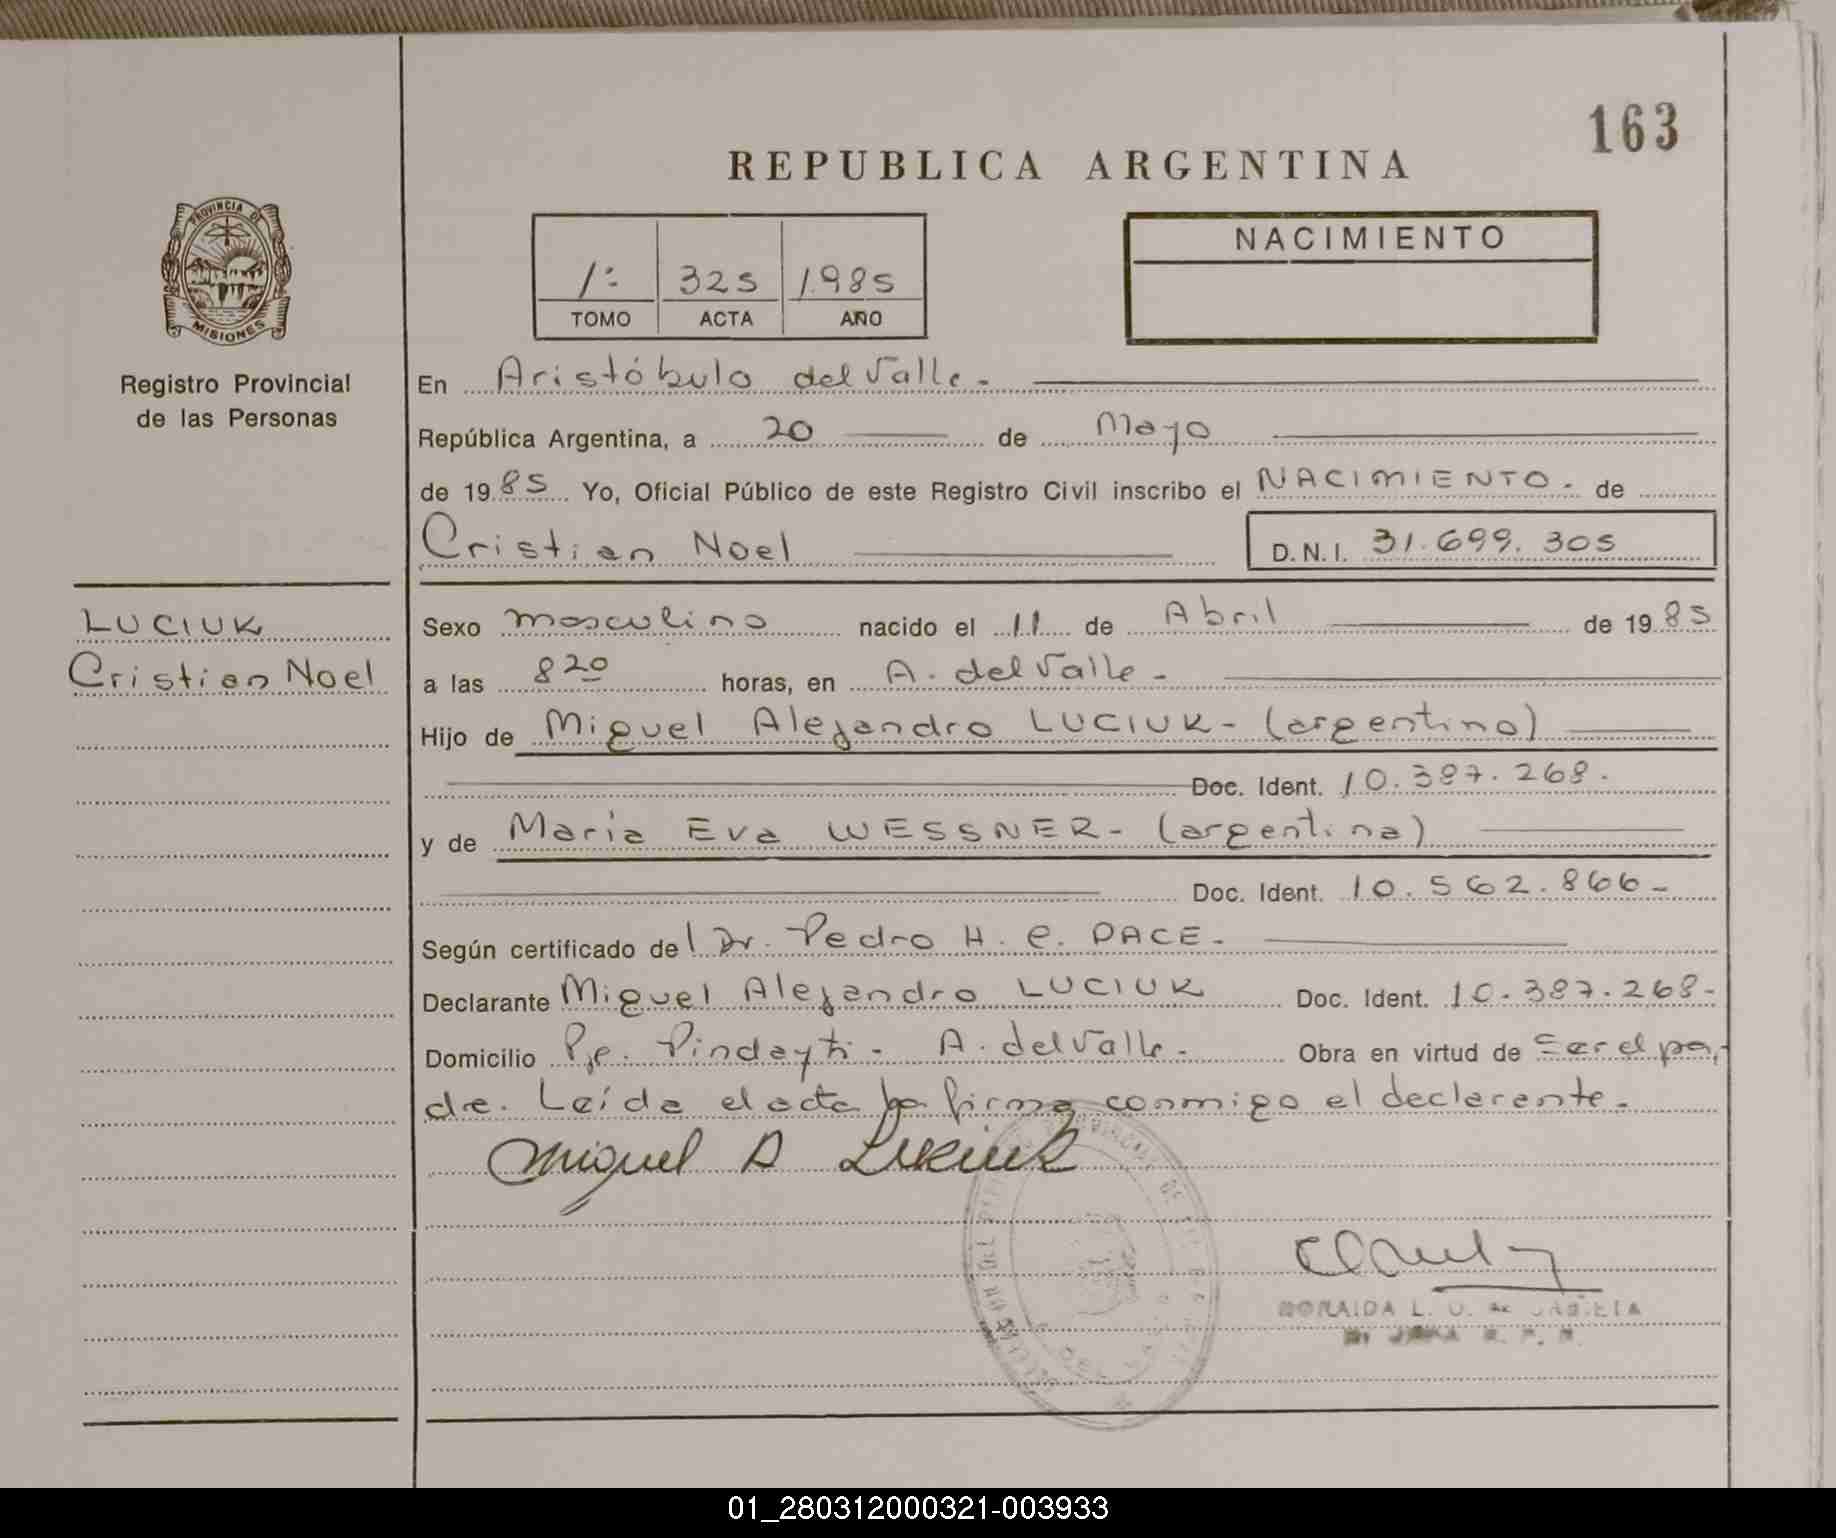 163
REPUBLICA ARGENTINA
PROVINCIA DE
MISIONES
Registro Provincial
de las Personas
1: 325 1.985
TOMO ACTA AÑO
NACIMIENTO
En Aristóbulo del Valle.-
República Argentina, a 20 de Mayo
de 1985 Yo, Oficial Público de este Registro Civil inscribo el NACIMIENTO.- de
Cristian Noel D.N.I. 31.699.305
LUCIUK
Cristian Noel
Sexo masculino nacido el 11 de Abril de 1985
a las 8 20 horas, en A. del Valle -
Hijo de Miguel Alejandro LUCIUK - (argentino)
Doc. Ident. 10.387.268.
y de Maria Eva WESSNER - (argentina)
Doc. Ident. 10.562.866-
Según certificado del Dr. Pedro H. C. PACE.-
Declarante Miguel Alejandro LUCIUK Doc. Ident. 10.387.268-
Domicilio Pje. Pindayti - A. del Valle.- Obra en virtud de Ser el pa-
dre. Leída el acta la firma conmigo el declarente.-
Miguel A Lukiuk
L. O. de
01_280312000321-003933